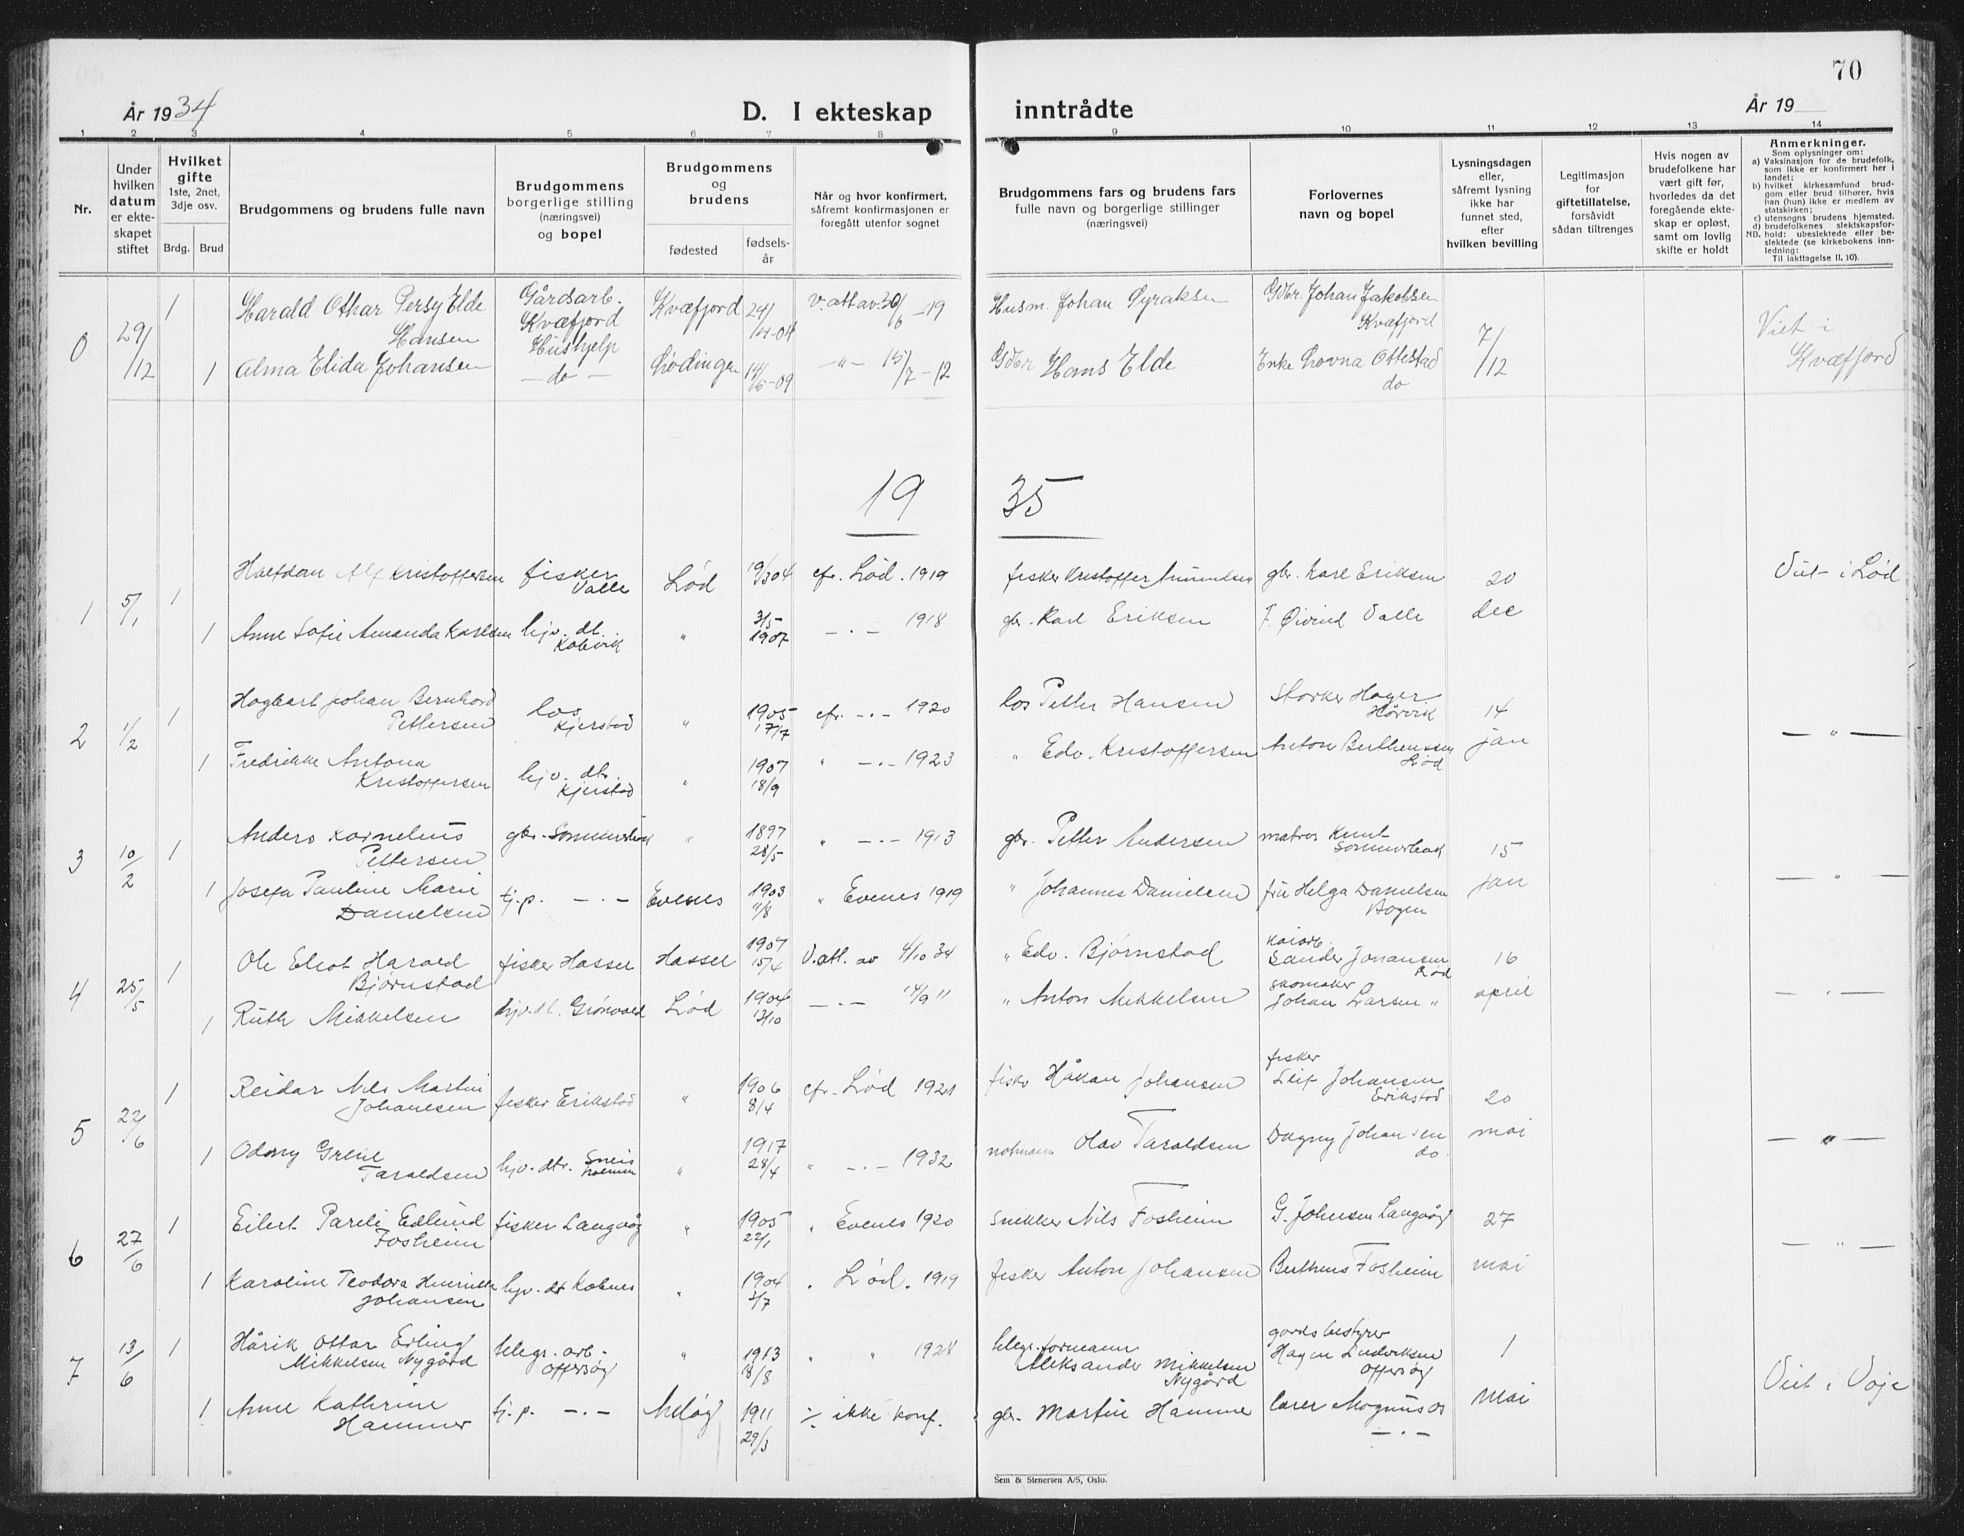 70
År 1934
D. I ekteskap inntrådte
År 19
1 2 3 4 5 6 7 8 9 10 11 12 13 14
Nr.
Under hvilken datum er ekteskapet stiftet
Hvilket gifte
1ste, 2net, 3dje osv.
Brdg. Brud
Brudgommens og brudens fulle navn
Brudgommens borgerlige stilling (næringsvei) og bopel
Brudgommens og brudens
fødested
fødsels-år
Når og hvor konfirmert, såfremt konfirmasjonen er foregått utenfor sognet
Brudgommens fars og brudens fars fulle navn og borgerlige stillinger (næringsvei)
Forlovernes navn og bopel
Lysningsdagen eller, såfremt lysning ikke har funnet sted, efter hvilken bevilling
Legitimasjon for giftetillatelse, forsåvidt sådan tiltrenges
Hvis nogen av brudefolkene har vært gift før, hvorledes da det foregående ekteskap er opløst, samt om lovlig skifte er holdt
Anmerkninger.
Som oplysninger om:
a) Vaksinasjon for de brudefolk, som ikke er konfirmert her i landet;
b) hvilket kirkesamfund brudgom eller brud tilhører, hvis han (hun) ikke er medlem av statskirken;
c) utensogns brudens hjemsted.
d) brudefolkenes slektskapsforhold: ubeslektede eller beslektede (se kirkebokens innledning:
NB.
Til iakttagelse II. 10).
0 29/12 1 Harald Othar Persy Elde Hansen Gårdsarb. Kvæfjord Kvæfjord 24/11-04 v. att av 30/6-19 Husm. Johan Gdbr. Johan Jakobsen Kvæfjord 7/12 Viet i Kvæfjord
1 Alma Elida Johansen Hushjelp - do - Lødingen 14/5-09 -"- 15/7-12 Gdbr Hans Elde Enke Lovna Ottestad do
1935
1 5/1 1 Halfdan Alf Kristoffersen fisker Valle Lød 19/3 04 efr. Lød. 1919 fisker Kristoffer Amundsen gbr. Karl Eriksen 20 dec Viet i Lød
1 Anne Sofie Amanda Karlsen hjv. dt. Kobvik " 3/5 1907 - . - 1918 gbr. Karl Eriksen F. Øivind Valle
2 1/2 1 Hagbart Johan Bernhard Pettersen los Kjerstad " 1905 17/7 efr. - . - 1920 los Petter Hansen Hårvik 14 jan - " -
1 Fredrikke Antona Kristoffersen hjv. dtr. Kjerstad " 1907 18/9 " - . - 1923 " Edv. Kristoffersen Anton Berthenssen Lød
3 10/2 1 Anders Kornelius Pettersen gbr. " 1897 28/5 " - . - 1913 gbr. Petter Andersen matros Knut 15 jan - " -
1 Josefa Pauline Marie Danielsen tj.p. - . - Evenes 1903 11/8 " Evenes 1919 " Johannes Danielsen frk Helga Danielsen Bogen
4 25/5 1 Ole Eliot Harald Bjørnstad fisker Hassel Hassel 1907 15/4 V. att. av 4/10 34 " Edv. Bjørnstad kaiarb. Sander Johansen Lød 16 april - " -
1 Ruth Mikkelsen hjv. dt. Grønvold Lød 1904 13/10 - . - 14/9 " " Anton Mikkelsen skomaker Johan Larsen "
5 22/6 1 Reidar Nils Martin Johansen fisker Erikstad " 1906 8/4 efr. Lød 1921 fisker Håkan Johansen fisker Leif Johansen Erikstad 20 mai - " -
1 Odny Grete Taraldsen hjv. dtr. " 1917 28/4 " - . - 1932 notmann Olav Taraldsen Dagny Johansen do.
6 27/6 1 Eilert Pareli Edlund Fosheim fisker Langvåg " 1905 22/1 " Evenes 1920 snekker Nils Fosheim G. Johnsen Langvåg 27 mai - " -
1 Karoline Teodora Henrikke Johansen hjv. dt Kobnes " 1904 . Lød. 1919 fisker Anton Johansen Berthens Fosheim
7 13/6 1 Hårik Ottar Erling Mikkelsen Nygård telegr. arb. Offersøy " 1913 18/8 " " 1928 telegr. formann Aleksander Mikkelsen Nygård gårdsbestyrer Hagen Ludvriksen Offersøy 1 mai Viet i
1 Anne Kathrine Hammer tj.p. - . - Meløy 1911 29/3 ./. ikke konf. gbr. Martin Hammer lærer Magnus os - . -
Sem & Stenersen A/S, Oslo.